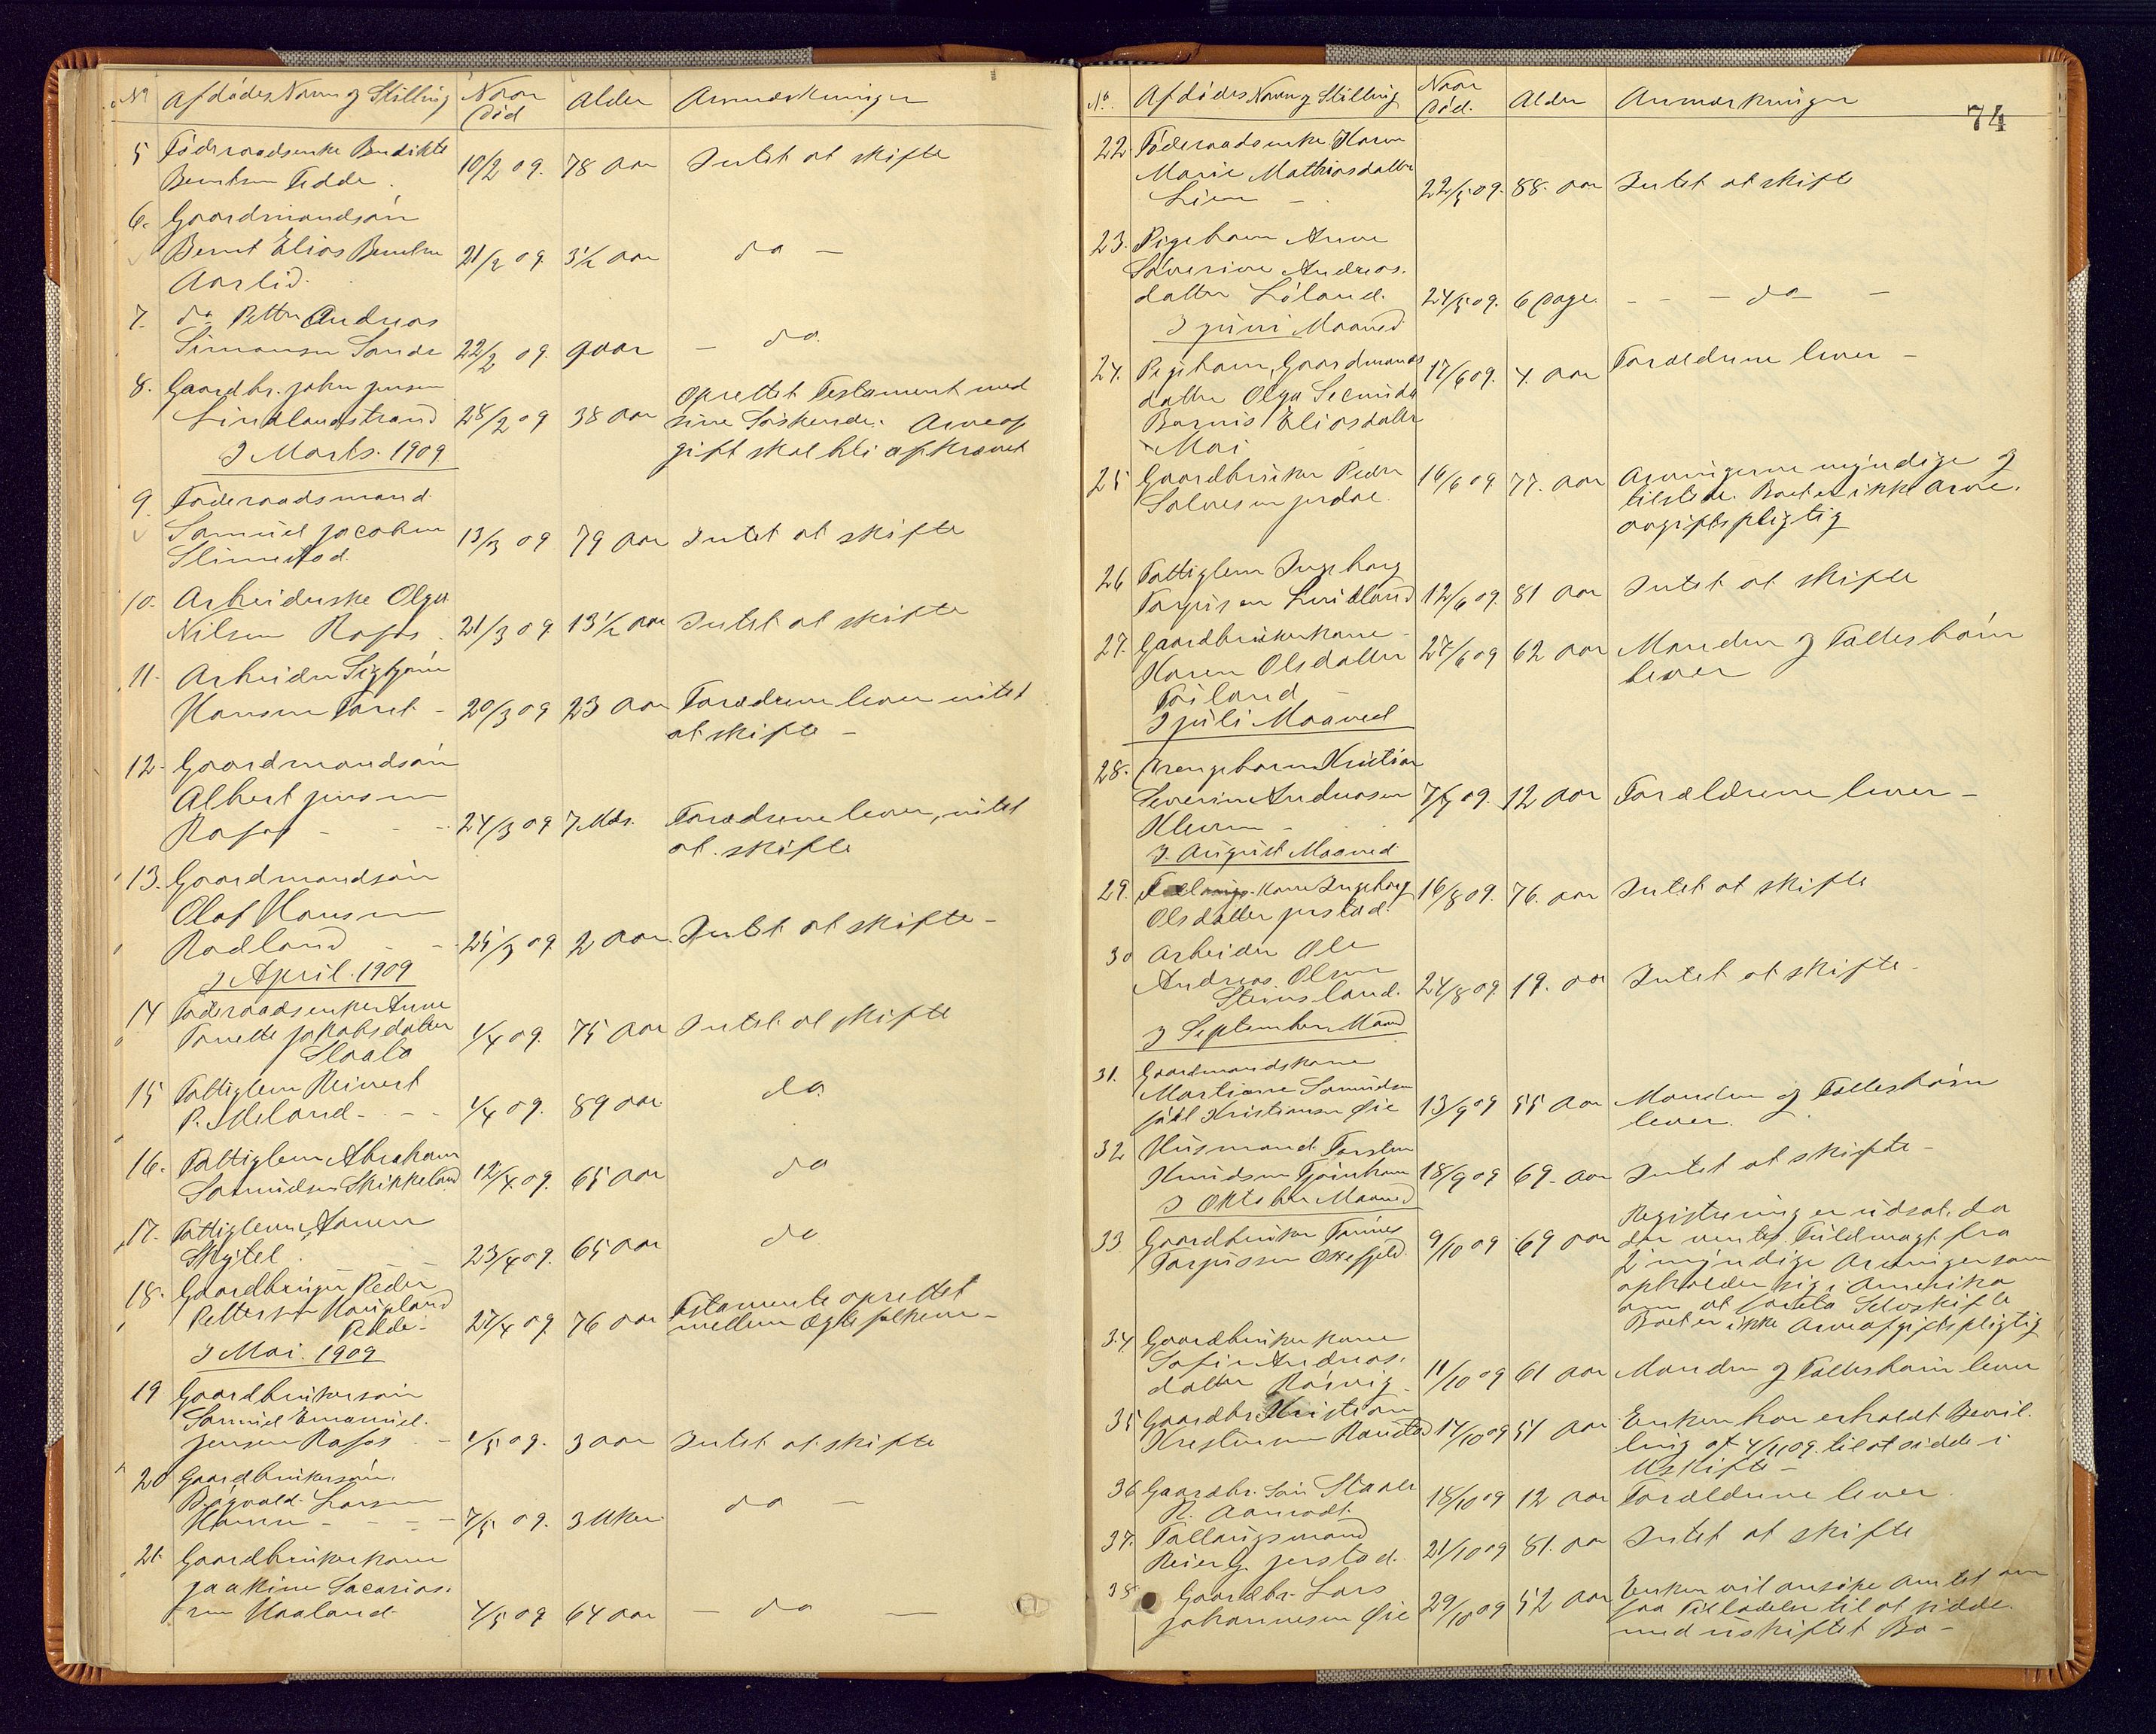 No Afdødes Navn og Stilling Naar Død Alder Anmærkninger
5 Føderaadsenke Bendikte
Berntsen Fedde. 10/2 09. 78 aar Intet at skifte
6. Gaardmandsøn
Bernt Elias Berntsen 21/2 09. 3½ aar do —
Aarlid.
7. do Petter Andreas
Simonsen Sande 22/2 09. 9 aar — do.
8. Gaardbr. John Jensen oprettet Testament med
Lindlandstrand 28/2 09 38 aar sine Søskende. Arveaf
I Marts. 1909 gift skal bli afkrævet
9. Føderaadsmand
Samuel Jacobsen 13/3 09 79 aar Intet at skifte
Slimestad.
10. Arbeiderske Olga
Nilsen Rafos. 21/3 09 13½ aar Intet at skifte
11. Arbeider Sigbjørn
Hansen 20/3 09 23 aar Forældrene lever intet
at skifte —
12. Gaardmandsøn
Albert Jensen
Rafos - 24/3 09 7 Mdr. Forældrene lever, intet
at skifte
13. Gaardmandsøn
Olaf Hansen
Rødland 25/3 09 2 aar. Intet at skifte -
I April. 1909
14 Føderaadsenke Anne
Tonette Jakobsdatter 1/4 09. 75 aar Intet at skifte
15 Fattiglem Reinert
P. Meland - 1/4 09. 89 aar do.
16. Fattiglem Abraham
Samuelsen Skikkeland 12/4 09. 65 aar do
17. Fattiglem
23/4 09. 65 aar do
18. Gaardbruger Peder
Pettersen Haugland 27/4 09 76 aar Testamente oprettet
mellem Ægtefolkene -
I Mai. 1909
19 Gaardbrukersøn
Samuel Emanuel.
Jensen Rafos 1/5 09. 3 aar Intet at skifte
20 Gaardbrukersøn.
Larsen
7/5 09. 3 Uker do —
21. Gaardbrukerkone
Joakine Sacarias.
sen Haaland. 4/5 09 64 aar — do —
74
No. Afdødes Navn og Stilling Naar Død. Alder Anmærkninger
22. Føderaadsenke Karen
Marie Mathiasdatter
Lien — 22/5 09. 88. aar Intet at skifte
23. Pigebarn Anne
Søverine Andreas.
datter Løland. 24/5 09. 6 Dage - - - do —
I Juni Maaned
24. Pigebarn, Gaardmands 17/6 09. 4. aar Forældrene lever -
datter Olga
Eliasdatter
Moi
25 Gaardbruker Peder 16/6 09. 77. aar Arvingerne myndige og
Salvesen tilstede. Boet er ikke arve.
avgiftspligtig
26 Fattiglem Ingeborg
Torgisen Lindland 12/6 09. 81 aar Intet at skifte
27. Gaardbrukerkone -
Karen Olsdatter 27/6 09 62 aar Manden og Fællesbørn
lever
I Juli Maaned
28. Drengebarn Kristian
Severin Andreasen 7/7 09. 12 aar Forældrene lever -
I. August Maaned
29. Kone Ingeborg 16/8 09. 76. aar Intet at skifte
Olsdatter Jerstad.
30 Arbeider Ole
Andreas. Olsen
Steinsland. 24/8 09. 19. aar Intet at skifte -
I September Maaned
31. Gaardmandskone
Martiane Samuelsen
født Kristiansen Øie 13/9 09 55 aar Manden og Fællesbørn
lever.
32 Husmand Torsten
Knudsen 18/9 09 69. aar Intet at skifte -
I Oktober Maaned
33. Gaardbruker Tønnes 9/10 09 69 aar Registrering er udsat. da
Torgissen der ventes Fuldmagt fra
2 myndige Arvinger som
opholder sig i Amerika
om at foreta Selvskifte
Boet er ikke Arveafgiftspligtig
34 Gaardbrukerkone
Sofie Andreas.
datter Røsvig. 11/10 09 61 aar Manden og Fællesbørn lever
35 Gaardbr. Kristian
Kristensen 14/10 09 51 aar Enken har erholdt Bevil.
ling af 4/11 09. til at sidde i
Uskifte -
36 Gaardbr. Søn
R. Aamodt. 18/10 09 12 aar Forældrene lever.
37. Follaugsmand
Reier G. Jerstad. 21/10 09 81. aar Intet at skifte
38 Gaardbr. Lars
Johannesen Øie 29/10 09 52 aar Enken vil ansøke Amtet om
faa Tilladelse til at sidde.
med uskiftet Bo -